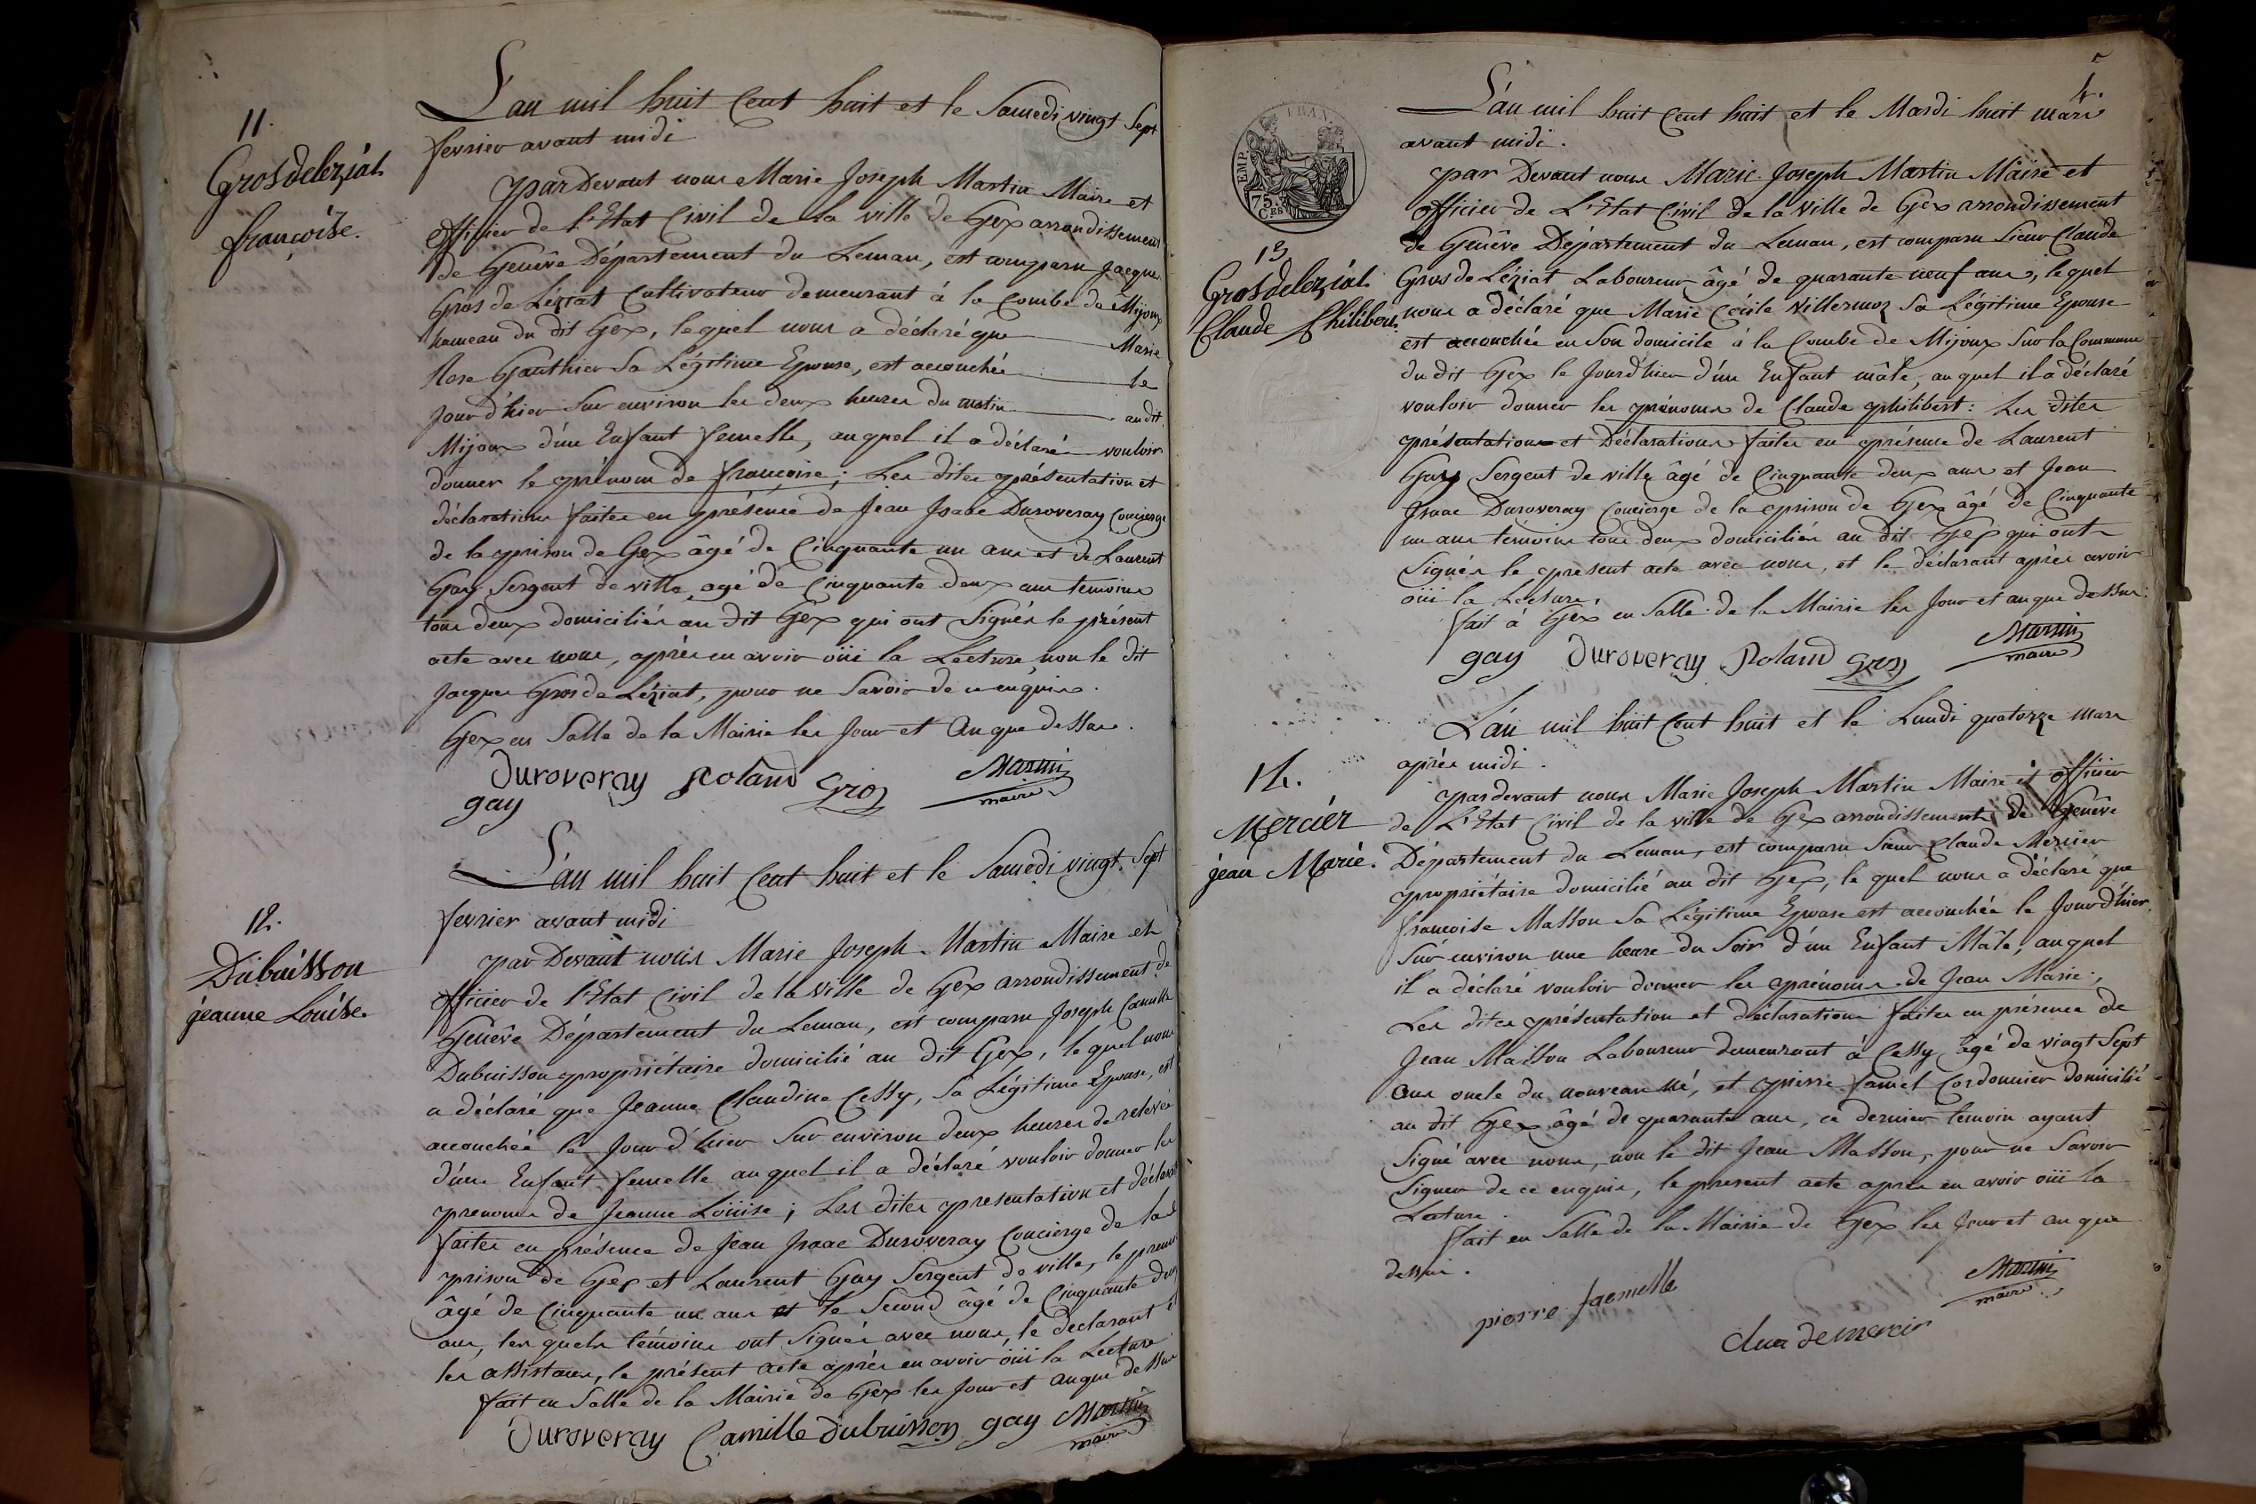 11.
Grosdeleziat
françoise.
L'an mil huit Cent huit et le Samedi vingt Sept
fevrier avant midi
par Devant nous Marie Joseph Martin Maire et
officier de l'Etat Civil de la ville de Gex arrondissement
de Genêve Département du Leman, est comparu Jacques
Gros de Léziat Cultivateur demeurant à la Combe de Mijoux
hameau du dit Gex, lequel nous a déclaré que Marie
Rose Gauthier Sa Légitime Epouse, est accouchée le
Jour d'hier Sur environ les deux heures du matin audit
Mijoux d'un Enfant femelle, auquel il a déclaré vouloir
donner le prénom de françoise; Les dites présentation et
déclarations faites en présence de Jean Isaac Duroveray Concierge
de la prison de Gex âgé de Cinquante un ans et de Laurent
Gay Sergent de ville, agé de Cinquante deux ans temoins
tous deux domiciliés au dit Gex qui ont Signés le présent
acte avec nous, après en avoir öüi la Lecture, non le dit
Jacques Gros de Léziat, pour ne Savoir de ce enquis.
Gex en Salle de la Mairie les Jour et An que dessus.
Duroveray Roland Gros Martin
gay maire
12.
Dubuisson
jeanne Louise.
L'an mil huit Cent huit et le Samedi vingt Sept
fevrier avant midi
par Devant nous Marie Joseph Martin Maire et
officier de l'Etat Civil de la ville de Gex arrondissement de
Genêve Département du Leman, est comparu Joseph Camille
Dubuisson propriétaire domicilié au dit Gex, le quel nous
a déclaré que Jeanne Claudine Cessy, Sa Légitime Epouse, est
accouchée le Jour d'hier Sur environ deux heures de relevée
d'un Enfant femelle auquel il a déclaré vouloir donner les
prenoms de Jeanne Loüise; Les dites presentation et déclarat
faites en présence de Jean Isaac Duroveray Concierge de la
prison de Gex et Laurent Gay Sergent de ville, le premier
âgé de Cinquante un ans et le Second âgé de Cinquante deux
ans, les quels témoins ont Signés avec nous, le declarant et
les assistans, le présent acte après en avoir öüi la Lecture
fait en Salle de la Mairie de Gex les Jour et an que dessus
Duroveray Camille Dubuisson gay Martin
maire
5
FRAN
EMP.
75.
Cen
13
Grosdeleziat
Claude Philibert.
L'an mil huit Cent huit et le Mardi huit mars
avant midi.
par Devant nous Marie Joseph Martin Maire et
officier de L'Etat Civil de la Ville de Gex arrondissement
de Genêve Département du Leman, est comparu Sieur Claude
Gros de Léziat Laboureur âgé de quarante neuf ans, lequel
nous a déclaré que Marie Cécile Villermoz Sa Légitime Epouse
est accouchée en Son domicile à la Combe de Mijoux Sur la Commune
du dit Gex le Jourd'hier d'un Enfant mâle, auquel il a déclaré
vouloir donner les prénoms de Claude philibert: Les dites
présentations et Déclarations faites en présence de Laurent
Gay Sergent de ville âgé de Cinquante deux ans et Jean
Isaac Duroveray Concierge de la prison de Gex âgé de Cinquante
un ans témoins tous deux domiciliés au dit Gex qui ont
Signés le present acte avec nous, et le déclarant après avoir
öüi la Lecture.
fait à Gex en Salle de la Mairie les Jour et an que dessus.
gay Duroveray Roland Gros Martin
maire
14.
Mercier
jean Marie.
L'an mil huit Cent huit et le Lundi quatorze mars
après midi.
par devant nous Marie Joseph Martin Maire et officier
de L'Etat Civil de la ville de Gex arrondissement de Genêve
Département du Leman, est comparu Sieur Claude Mercier
propriétaire domicilié au dit Gex, le quel nous a déclaré que
françoise Masson Sa Légitime Epouse est accouchée le Jour d'hier
Sur environ une heure du Soir d'un Enfant Mâle, auquel
il a déclaré vouloir donner les prénoms de Jean Marie;
Les dites présentation et déclarations faites en présence de
Jean Masson Laboureur demeurant à Cessy âgé de vingt Sept
ans oncle du nouveau né, et pierre famel Cordonnier domicilié
au dit Gex âgé de quarante ans, ce dernier temoin ayant
Signé avec nous, non le dit Jean Masson, pour ne Savoir
Signer de ce enquis, le present acte après en avoir öüi la
Lecture.
fait en Salle de la Mairie de Gex les Jour et an que
dessus.
pierre faemelle
Martin
maire